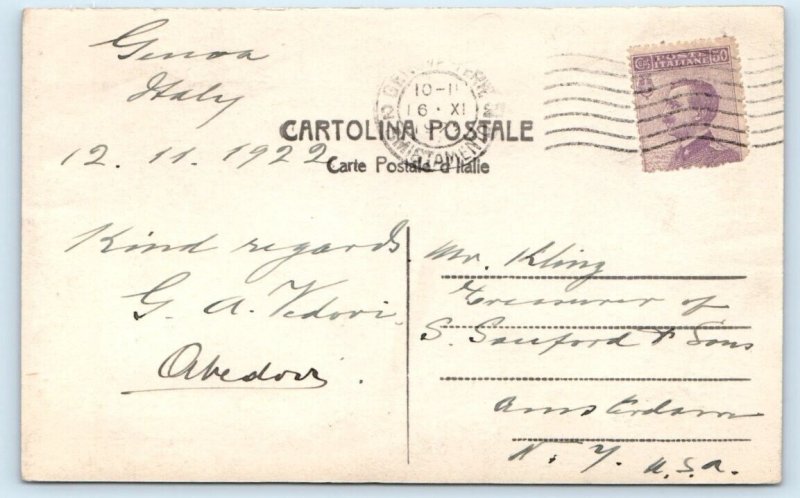 Genoa
Italy
12.11.1922
10-11
16·XI
CARTOLINA POSTALE
Carte Postale d'Italie
POSTE ITALIANE
50
Kind regards
G. A. Vedovi
Mr. Kling
Treasurer of
S. Sanford & Sons
Amsterdam
N. Y. U.S.A.